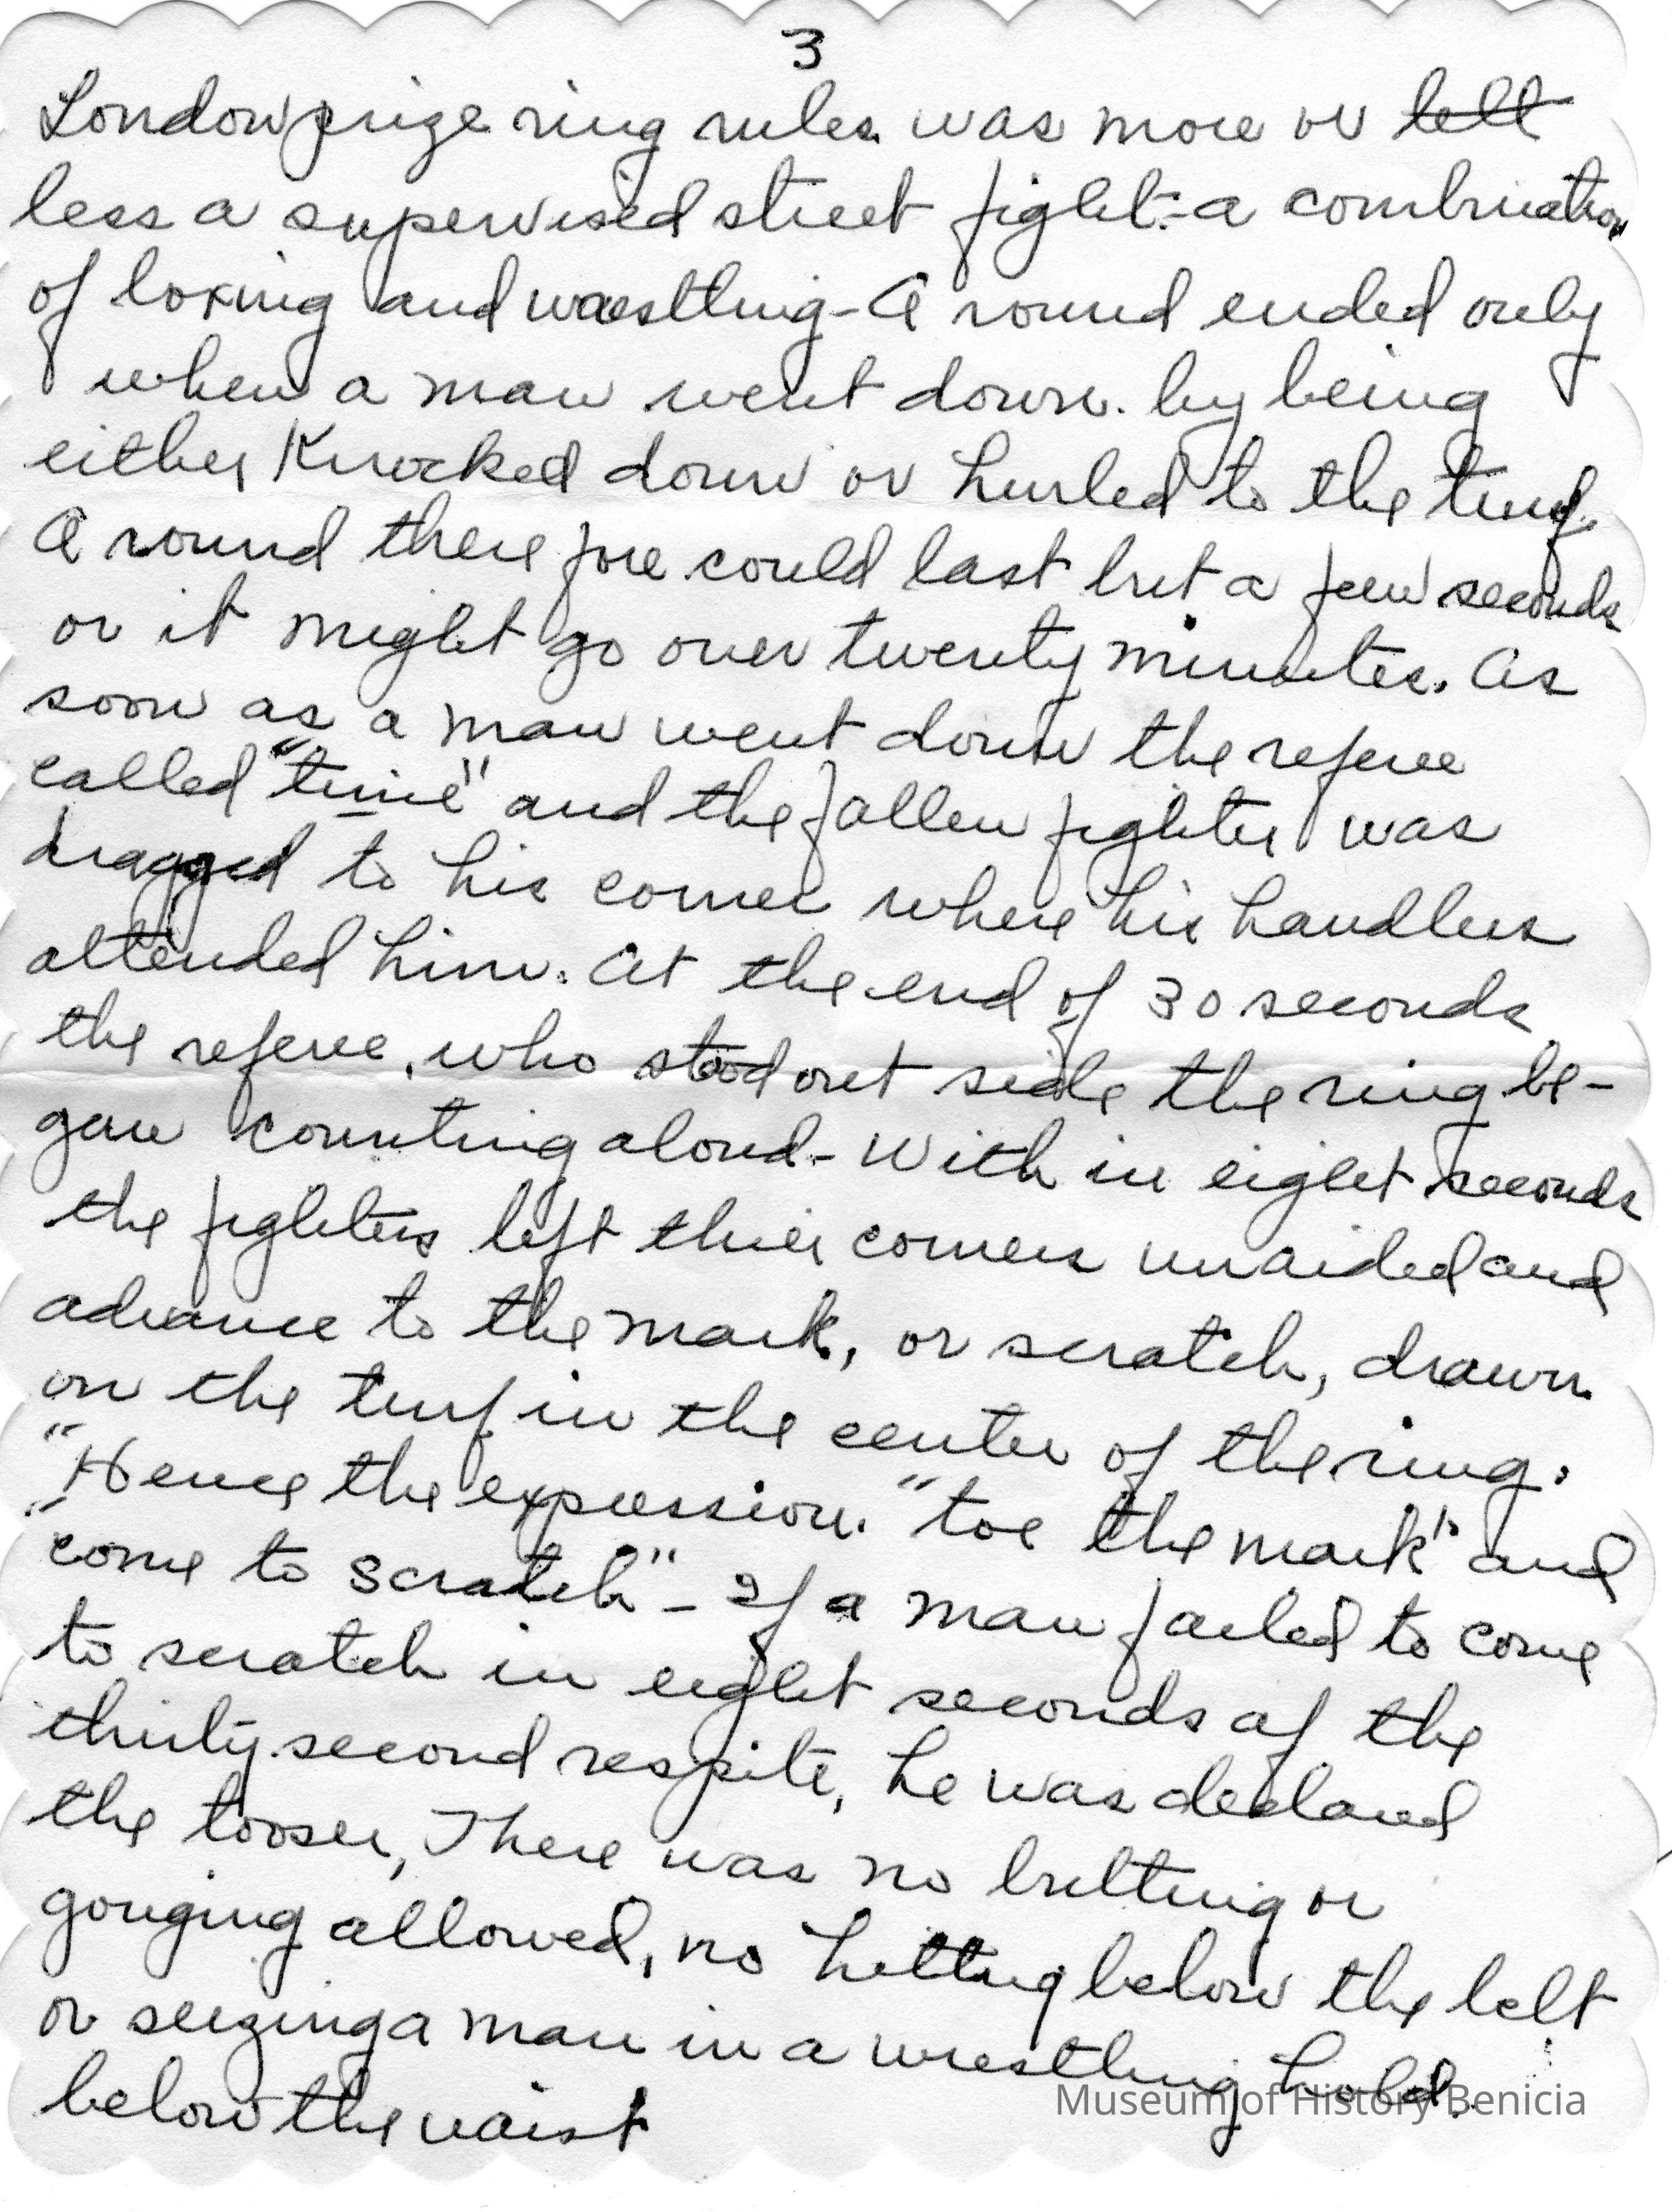 3
London prize ring rules was more or lelt
less a supervised street fight - a combination
of boxing and wrestling - A round ended only
when a man went down. by being
either Knocked down or hurled to the turf.
A round there fore could last but a few seconds
or it might go over twenty minutes. As
soon as a man went down the referee
called "time" and the fallen fighter was
dragged to his corner where his handlers
attended him. At the end of 30 seconds
the referee, who stood out side the ring be-
gan counting aloud - With in eight seconds
the fighters left thier corners unaided and
advance to the mark, or scratch, drawn
on the turf in the center of the ring.
"Hence the expression. "toe the mark" and
"come to scratch" - If a man failed to come
to scratch in eight seconds of the
thirty-second respite, he was declared
the looser, There was no butting or
gouging allowed, no hitting below the belt
or seizing a man in a wrestling hold.
below the waist
Museum of History Benicia